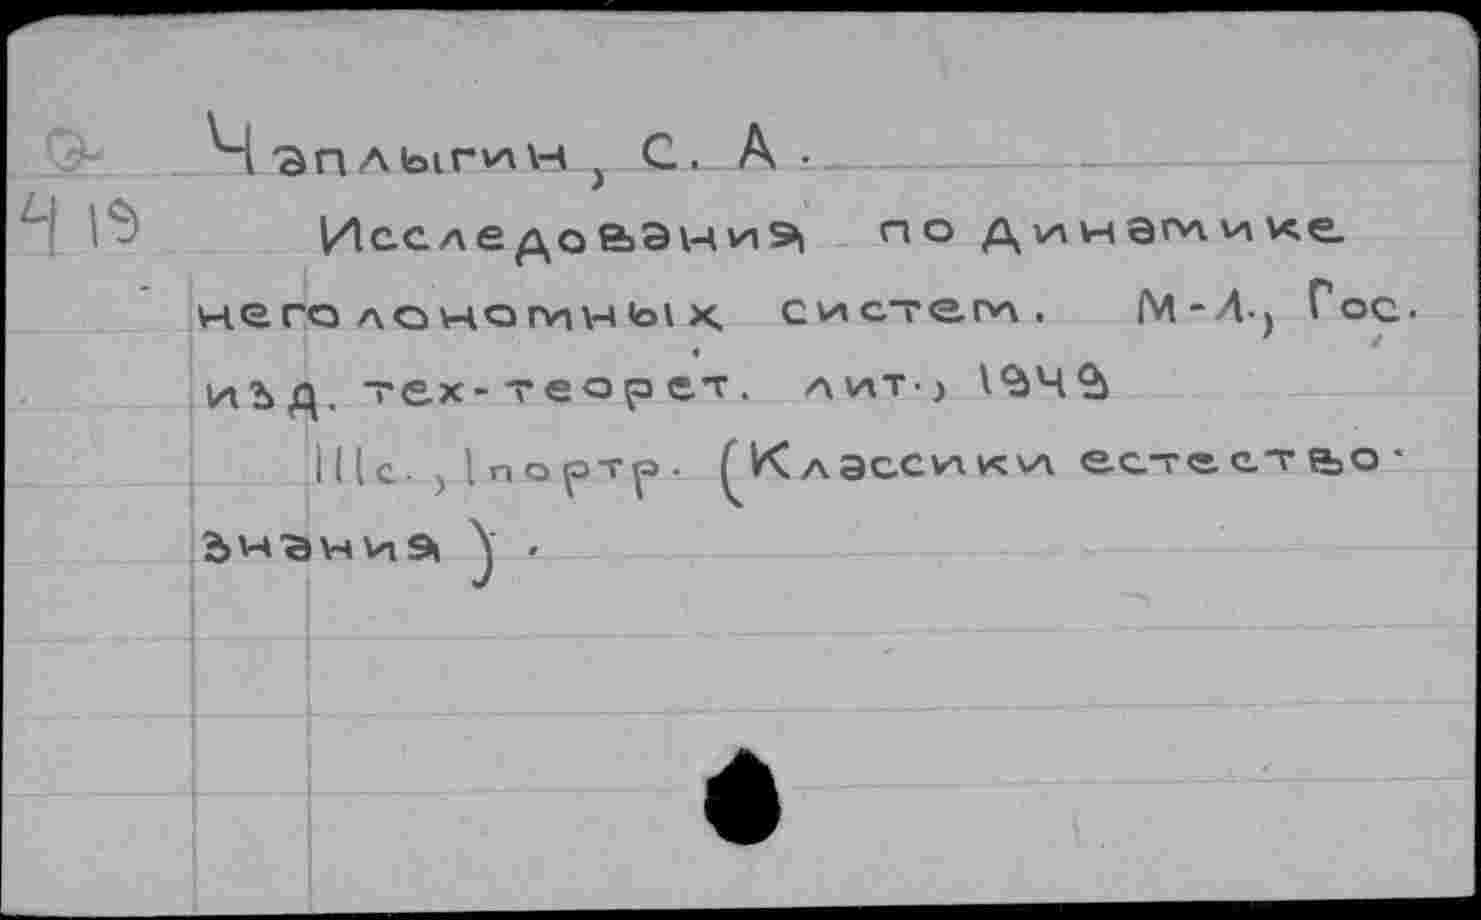 Чаплыгин, С. А.
Ч 19 Исследования по динамике
неголономных систем. М-Л., Гос.
изд. тех-теорет. лит., 1949
111с., 1 портр. (Классики естество-
знания).